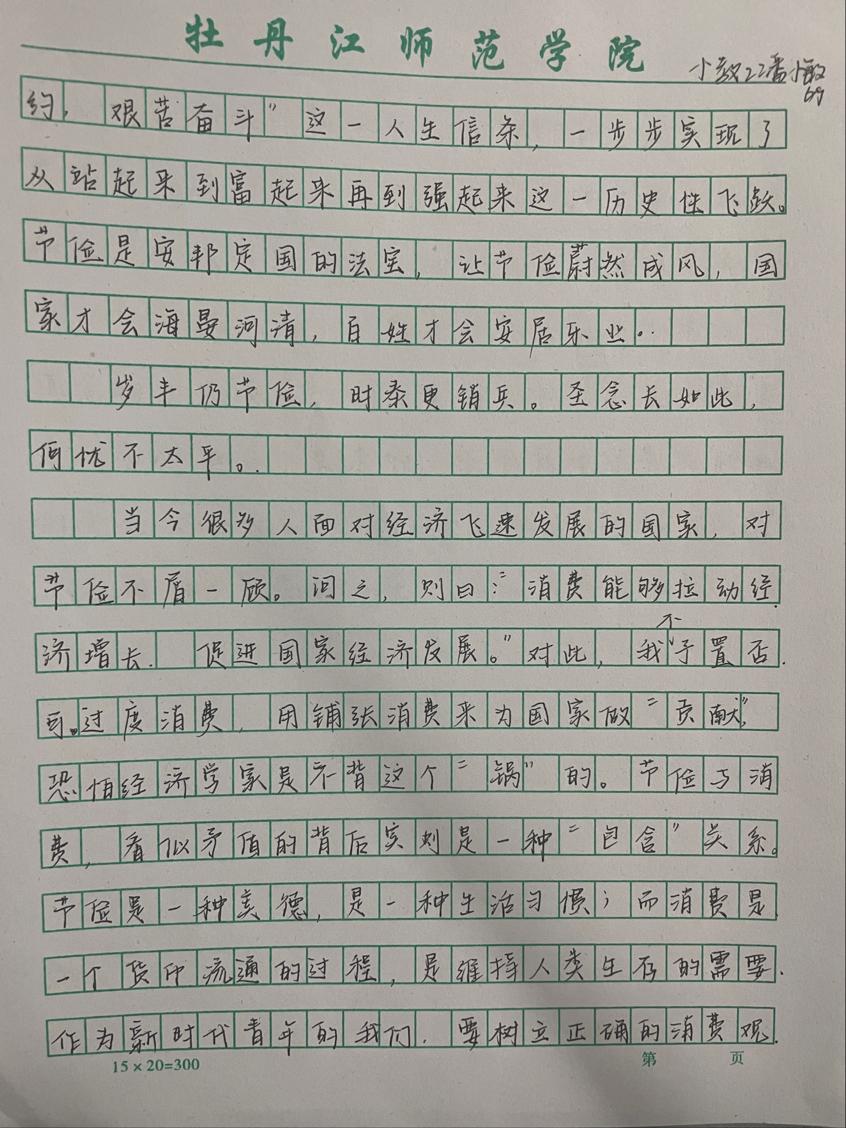 牡丹江师范学院
小教22潘小敏
69
约，艰苦奋斗”这一人生信条，一步步实现了
从站起来到富起来再到强起来这一历史性飞跃。
节俭是安邦定国的法宝，让节俭蔚然成风，国
家才会海晏河清，百姓才会安居乐业。
岁丰仍节俭，时泰更销兵。圣念长如此，
何忧不太平。
当今很多人面对经济飞速发展的国家，对
节俭不屑一顾。问之，则曰：“消费能够拉动经
济增长．促进国家经济发展。”对此，我不予置否
可。过度消费，用铺张消费来为国家做“贡献”，
恐怕经济学家是不背这个“锅”的。节俭与消
费，看似矛盾的背后实则是一种“包含”关系。
节俭是一种美德，是一种生活习惯；而消费是
一个货币流通的过程，是维持人类生存的需要．
作为新时代青年的我们．要树立正确的消费观．
15×20=300
第 页